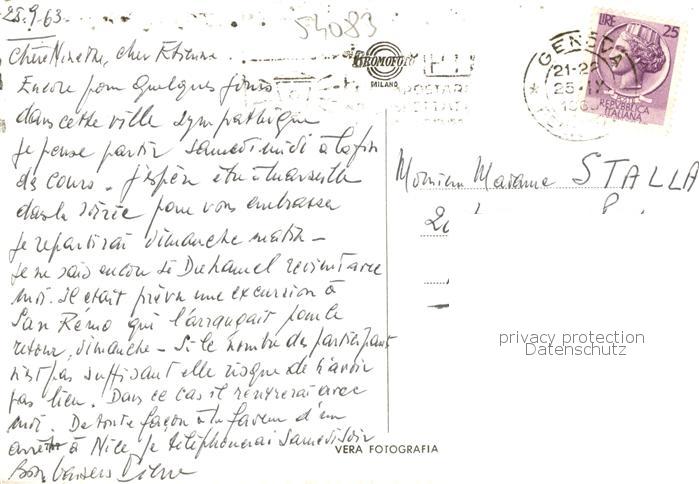 25.9.63.
54083
Chère Ninette, cher Etienne.
Encore pour quelques jours
dans cette ville sympathique
je pense partir samedi midi à la fin
du cours. J'espère être à Marseille
dans la soirée pour vous embrasser
je repartirai dimanche matin -
je ne sais encore si Duhamel revient avec
moi. Il était prévu une excursion à
San Rémo qui l'arrangait pour le
retour, dimanche - Si le nombre de participant
n'est pas suffisant elle risque de n'avoir
pas lieu. Dans ce cas il rentrerai avec
moi. De toute façon à la faveur d'un
arrêt à Nice je téléphonerai samedi soir
Bons baisers Pierre
BROMOFOTO
MILANO
GENOVA
21-22
25-IX
LIRE 25
POSTE
REPVBBLICA
ITALIANA
Monsieur Madame STALLA
P.
privacy protection
Datenschutz
VERA FOTOGRAFIA